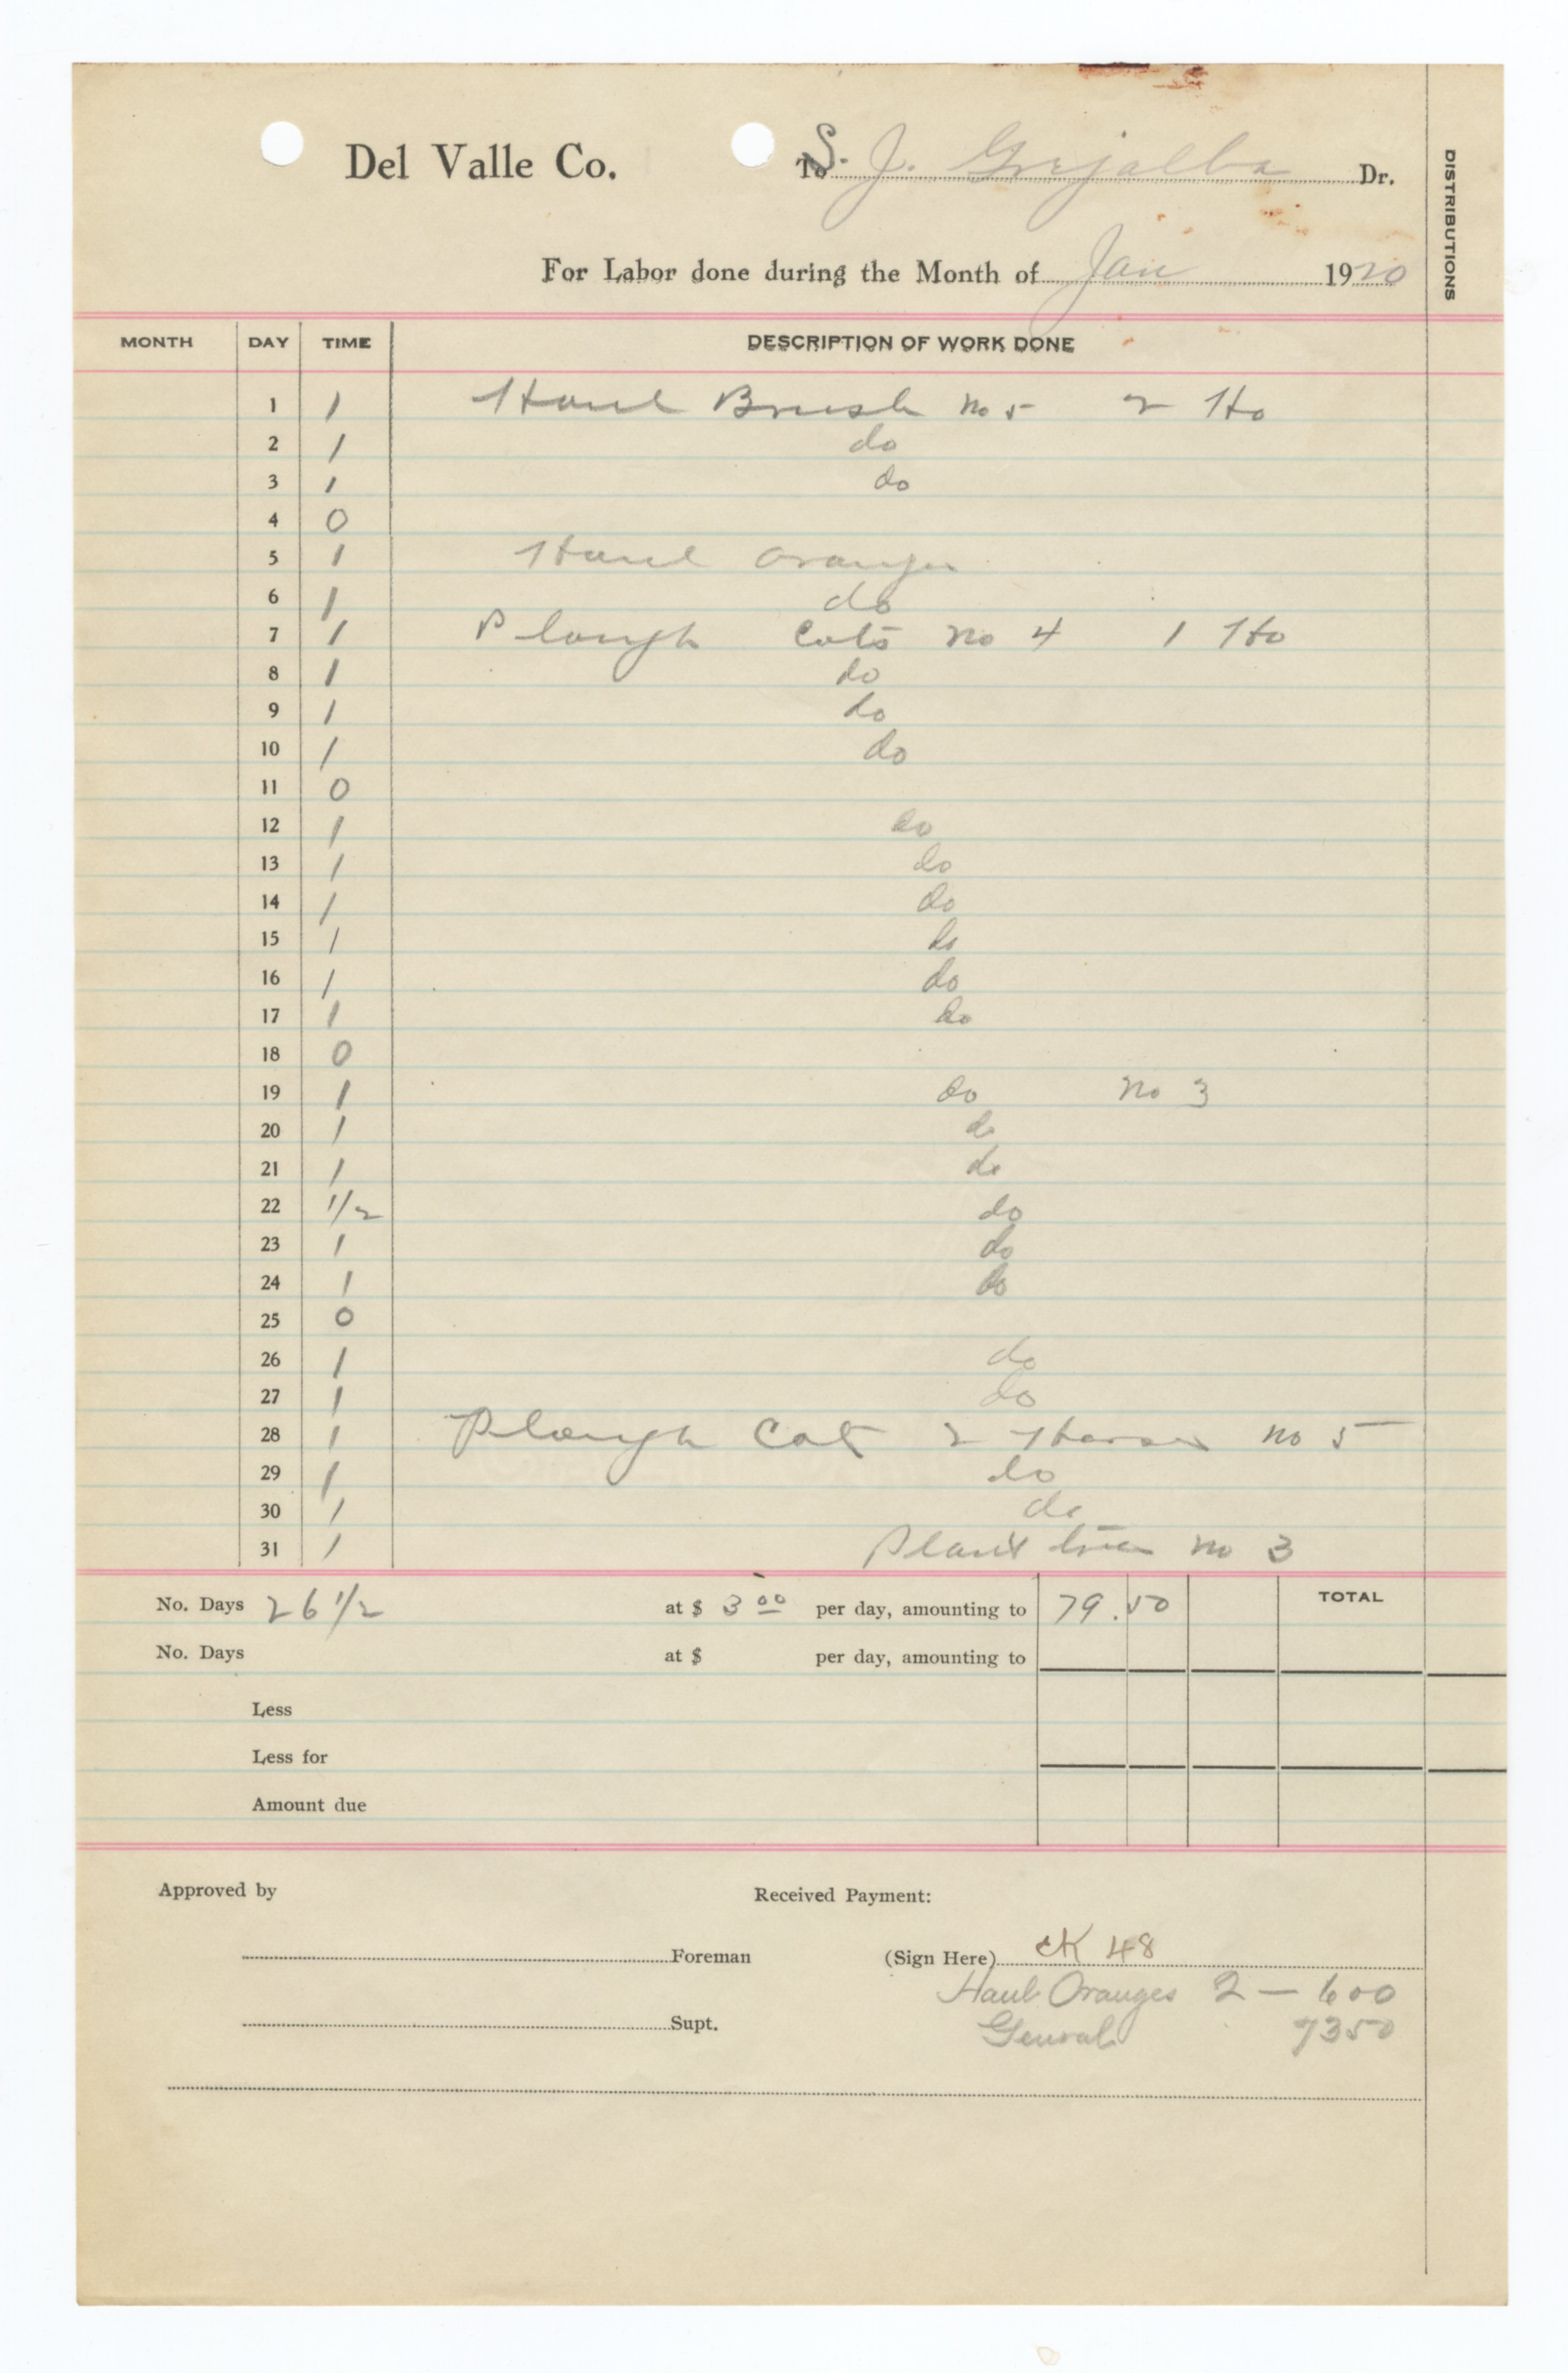 Del Valle Co. To S. J. Grijalba Dr.
DISTRIBUTIONS
For Labor done during the Month of Jan 1920
MONTH DAY TIME DESCRIPTION OF WORK DONE
1 1 Haul Brush No 5 2 Ho
2 1 do
3 1 do
4 0
5 1 Haul Oranges
6 1 do
7 1 Plough Cots No 4 1 Ho
8 1 do
9 1 do
10 1 do
11 0
12 1 do
13 1 do
14 1 do
15 1 do
16 1 do
17 1 do
18 0
19 1 do No 3
20 1 do
21 1 do
22 1/2 do
23 1 do
24 1 do
25 0
26 1 do
27 1 do
28 1 Plough Cot 2 Horses No 5
29 1 do
30 1 do
31 1 Plant trees No 3
No. Days 26 1/2 at $ 3 00 per day, amounting to 79.50 TOTAL
No. Days at $ per day, amounting to
Less
Less for
Amount due
Approved by Received Payment:
Foreman (Sign Here) CK 48
Haul Oranges 2 — 600
Supt. General 7350